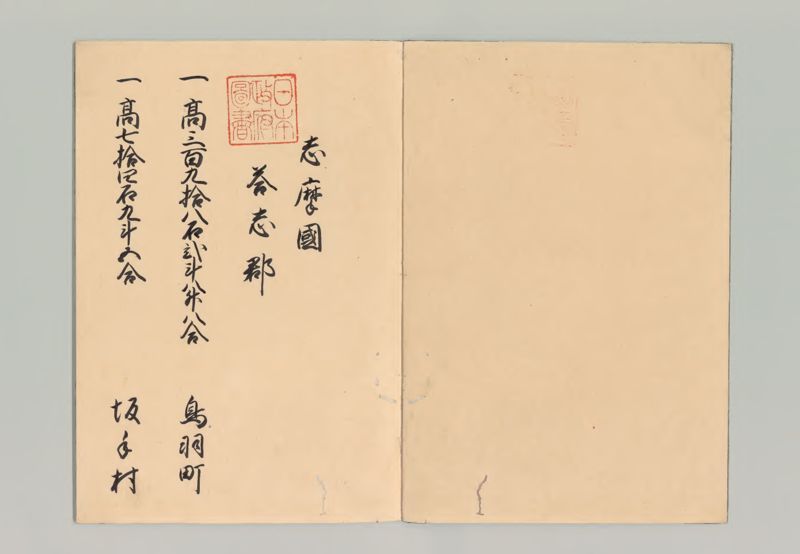 志摩國
答志郡
日本
政府
圖書
一 髙三百九拾八石弐斗八升八合 鳥羽町
一 髙七拾四石九斗五合 坂手村